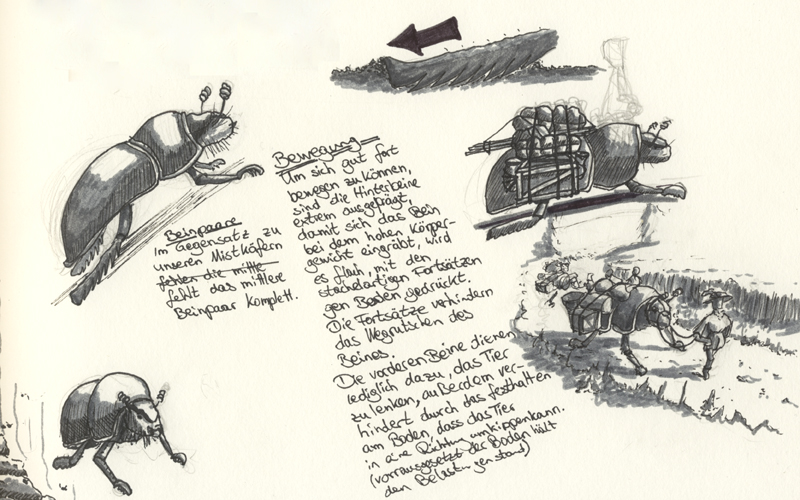 Beinpaare
Im Gegensatz zu
unseren Mistkäfern
fehlen die mittle
fehlt das mittlere
Beinpaar komplett.
Bewegung
Um sich gut fort
bewegen zu können,
sind die Hinterbeine
extrem ausgeprägt,
damit sich das Bein
bei dem hohen Körper-
gewicht eingräbt, wird
es flach, mit den
stachelartigen Fortsätzen
gen Boden gedrückt.
Die Fortsätze verhindern
das Wegrutschen des
Beines.
Die vorderen Beine dienen
lediglich dazu, das Tier
zu lenken, außerdem ver-
hindert durch das festhalten
am Boden, dass das Tier
in eine Richtung umkippen kann.
(vorrausgesetzt der Boden hält
den Belastungen stand)